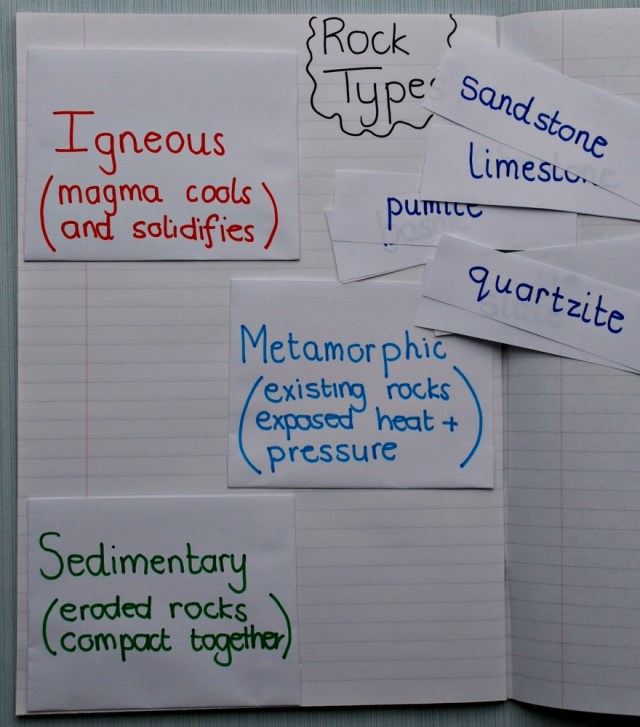 Rock
Types
Igneous
(magma cools
and solidifies)
sandstone
limestone
pumice
quartzite
Metamorphic
(existing rocks
exposed heat +
pressure)
Sedimentary
(eroded rocks
compact together)